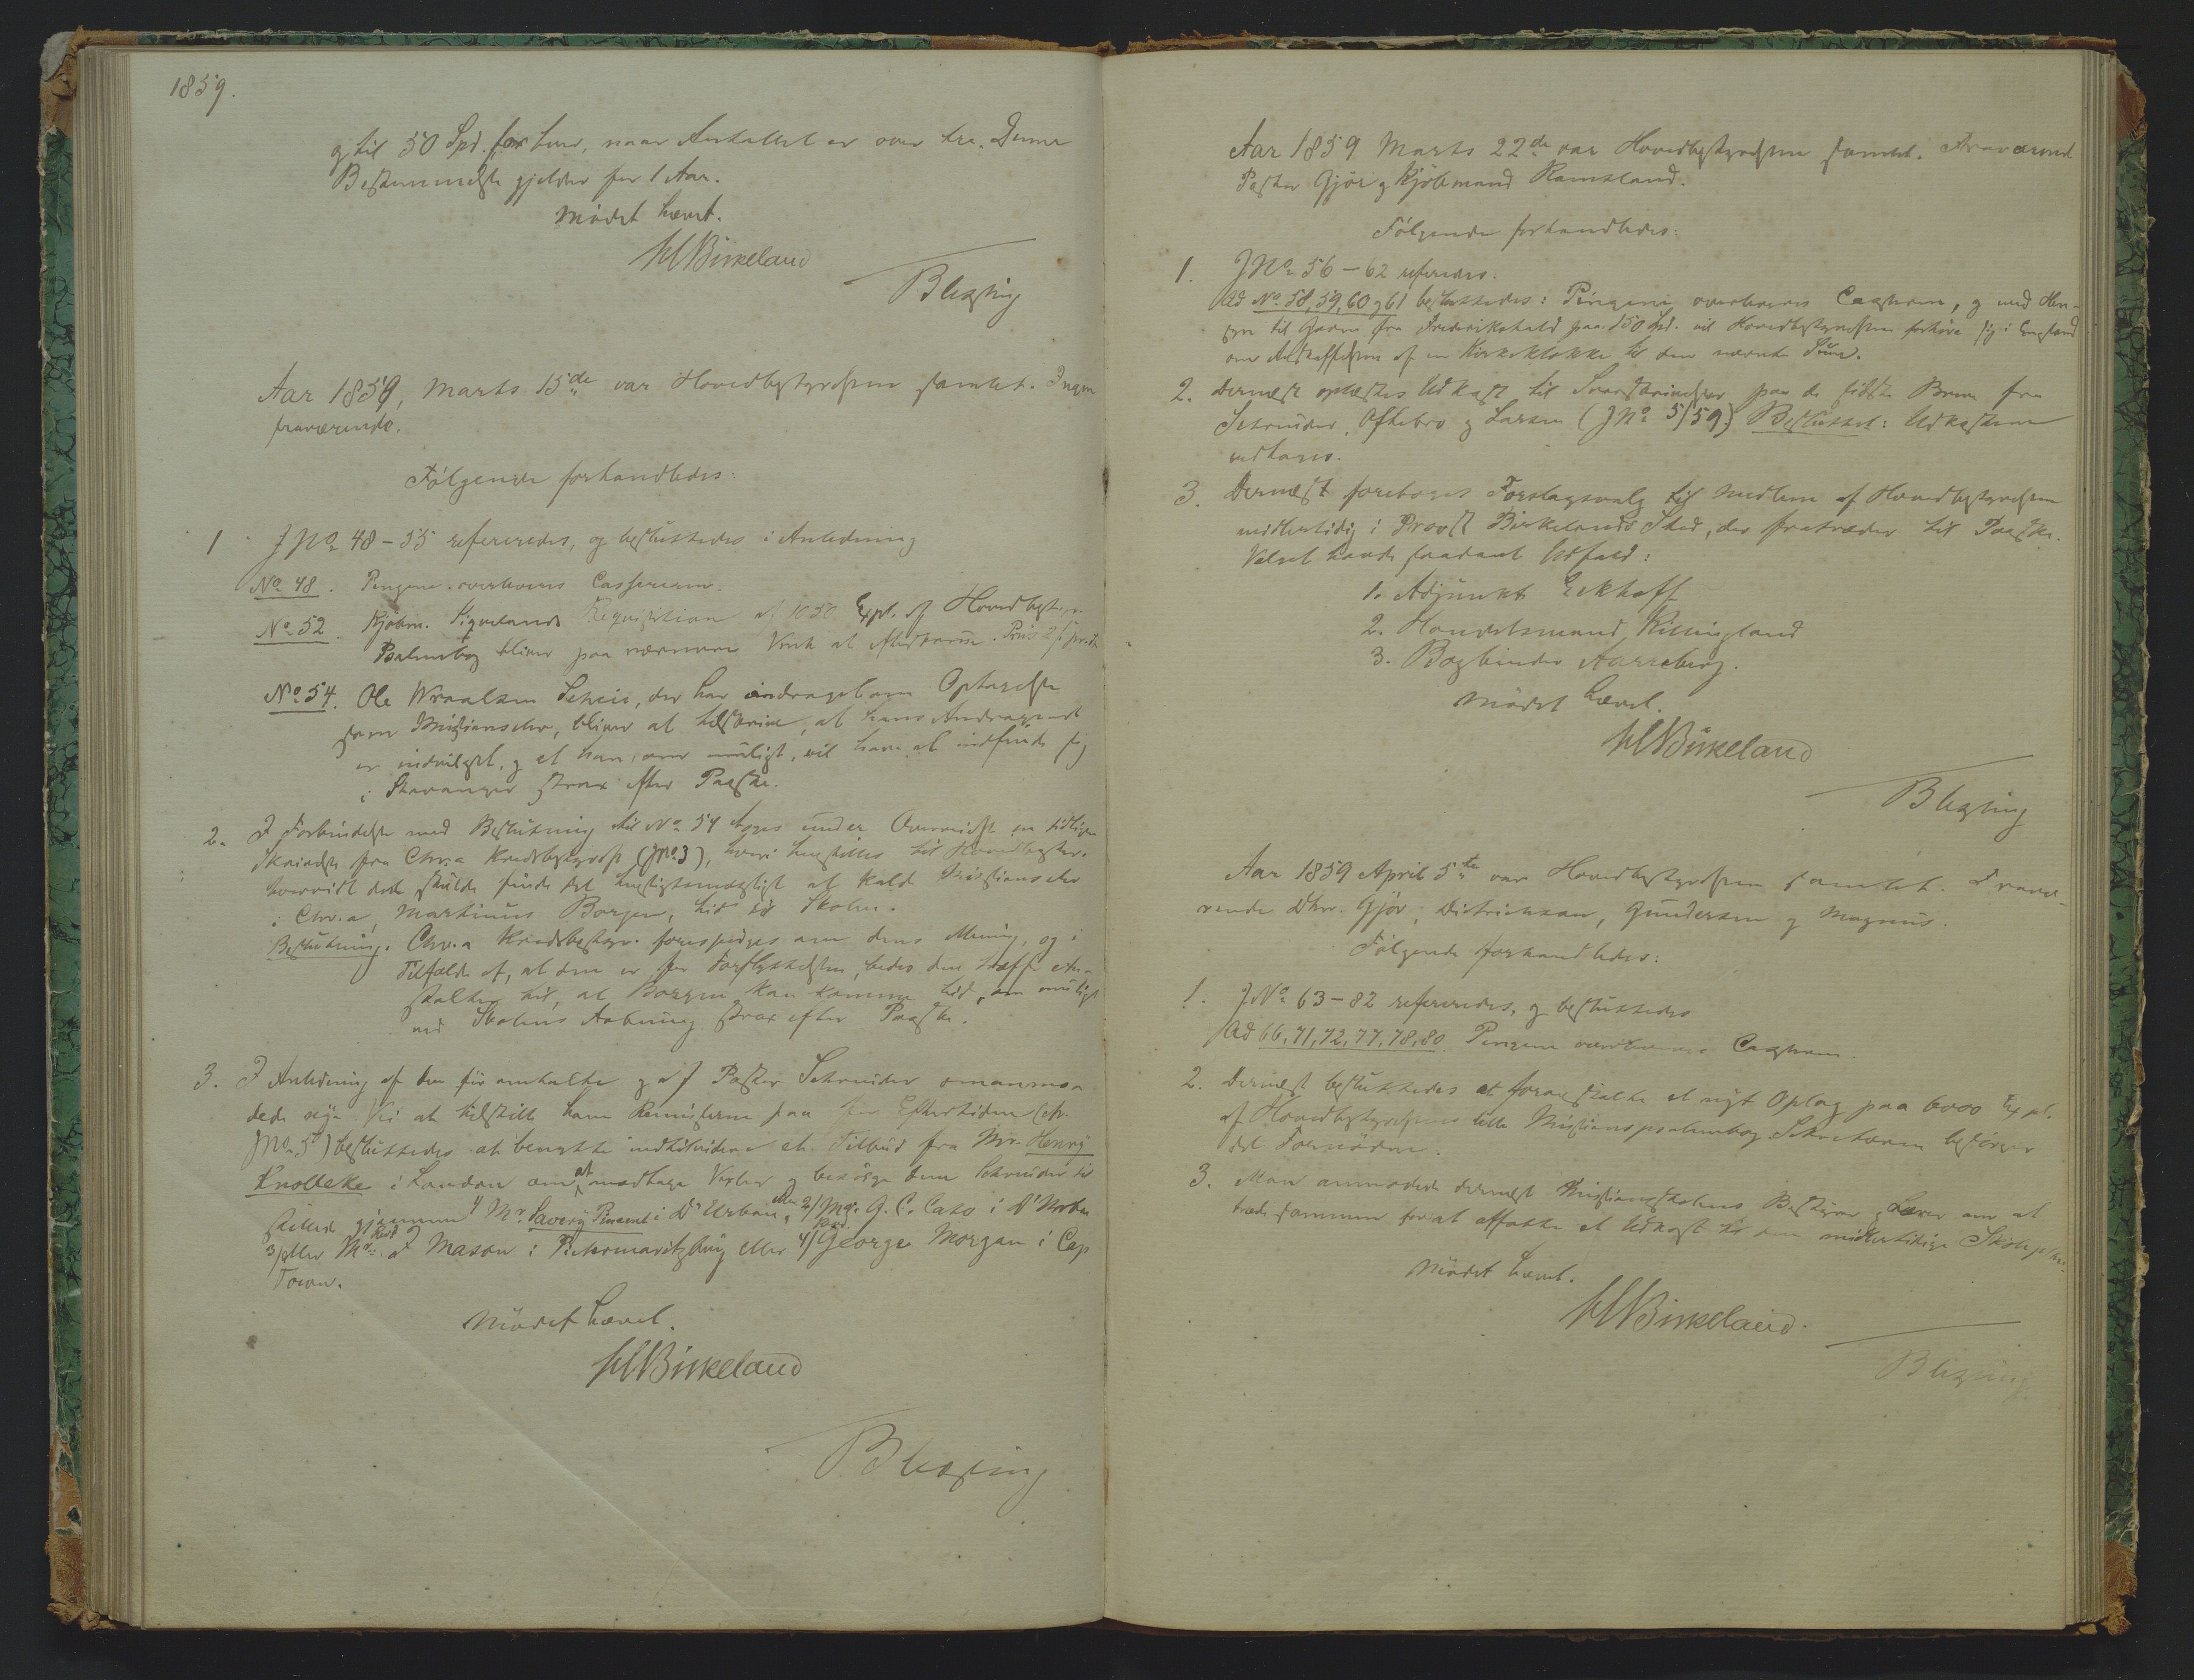 1859.
og til 50 Spd. for hver, naar Antallet er over tre. Denne
Bestemmelse gjelder for 1 Aar.
Mødet hævet.
Birkeland
Blessing
Aar 1859, Marts 15de var Hovedbestyrelsen samlet. Ingen
fraværende.
Følgende forhandledes:
1 J No 48-55 refereredes, og besluttedes i Anledning
No 48. Pengene overleveres Cassereren.
No 52. Kjøbm. Requisition af 1050 Expl. af Hovedbest.
Psalmebog bliver paa nærmere Vink at Pris
No 54. Ole Scheie, der har andraget om Optagelse
som Missionselev, bliver at tilskrive, at hans Andragende
er indvilget, og at han, om muligt, vil have at indfinde sig
i Stavanger strax efter Paaske.
2. I Forbindelse med Beslutning til No 54 toges under Overveielse en tidligere
Skrivelse fra Chr.a Kredsbestyrelse (JNo 3), hvori henstilles til Hovedbestyr.
hvorvidt det skulde findes hensigtsmæssigt at kalde Missionselev
i Chr.a, Martinius Borgen, hid til Skolen.
Beslutning. Chr.a Kredsbestyr. forespørges om dens Mening, og i
Tilfælde af, at den er for Forflyttelsen, bedes den træffe An-
stalter til, at Borgen kan komme hid, om muligt
ved Skolens Aabning strax efter Paaske.
3. I Anledning af den før omtalte og af Pastor Schreuder
dede nye Vei at tilstille ham Remisserne paa for Eftertiden (cfr.
JNo 5) besluttedes at benytte indtil videre et Tilbud fra Mr. Henry
Knolleke i London om at modtage Vexler og besørge dem Schreuder til
stillede gjennem 1/ Mr. Savery i D'Urban, eller 2/ Mr. G. C. Cato i D'Urban
3/ eller Mr. Mason i Pietermaritzburg eller 4/ George Morgan i Cap
Town.
Mødet hævet.
Birkeland
Blessing
Aar 1859 Marts 22de var Hovedbestyrelsen samlet. Fraværende
Pastor Gjør og Kjøbmand Ramsland.
Følgende forhandledes:
1. J No 56-62 refereredes.
Ad No. 58, 59, 60 og 61 besluttedes: Pengene overleveres Cassereren, og med Hen-
syn til Gaven fra Frederikshald paa 150 Spd. vil Hovedbestyrelsen forhøre sig i England
om Anskaffelsen af en Kirkeklokke til den nævnte Sum.
2. Dernæst oplæstes Udkast til Svarskrivelser paa de sidste Breve fra
Schreuder, Oftebro og Larsen (J No 5/59) Besluttet: Udkastene
vedtages.
3. Dernæst foretoges Forslagsvalg til Medlem af Hovedbestyrelsen
midlertidig i Provst Birkelands Sted, der fratræder til Paaske.
Valget havde saadant Udfald:
1. Adjunkt Eckhoff
2. Handelsmand Killingland
3. Bogbinder Aarreberg.
Mødet hævet.
Birkeland
Blessing
Aar 1859 April 5te var Hovedbestyrelsen samlet. Fravæ-
rende Dhrr. Gjør, Dietrichson, Gundersen og Magnus.
Følgende forhandledes:
1. J.No 63-82 refereredes, og besluttedes
Ad 66, 71, 72, 77, 78, 80. Pengene overleveres Cassereren.
2. Dernæst besluttedes at foranstalte et nyt Oplag paa 6000 Expl.
af Hovedbestyrelsens lille Missionspsalmebog. Sekretæren besørger
det Fornødne.
3. Man anmodede dernæst Missionsskolens Bestyrer og Lærer om at
træde sammen for at affatte et Udkast til den midlertidige
Mødet hævet.
Birkeland.
Blessing